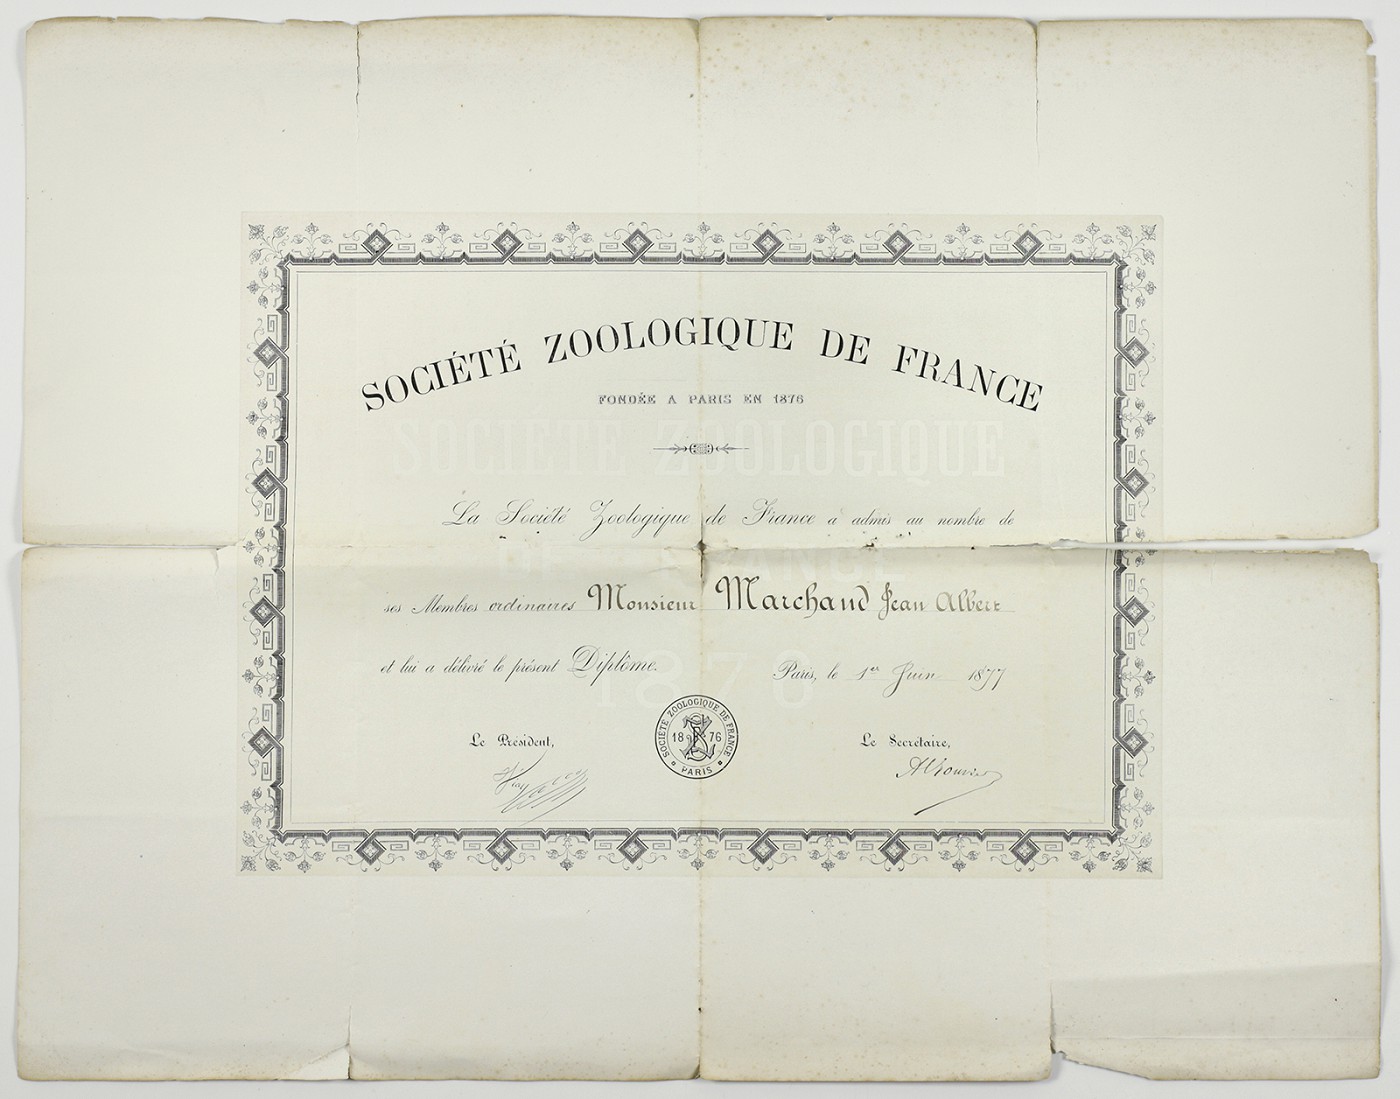 SOCIÉTÉ ZOOLOGIQUE DE FRANCE
FONDÉE A PARIS EN 1876
SOCIÉTÉ ZOOLOGIQUE
La Société Zoologique de France a admis au nombre de
DE FRANCE
ses Membres ordinaires Monsieur Marchand Jean Albert
et lui a délivré le présent Diplôme. Paris, le 1er Juin 1877
1876
SOCIÉTÉ ZOOLOGIQUE DE FRANCE
1876
PARIS
Le Président,
Le Secrétaire,